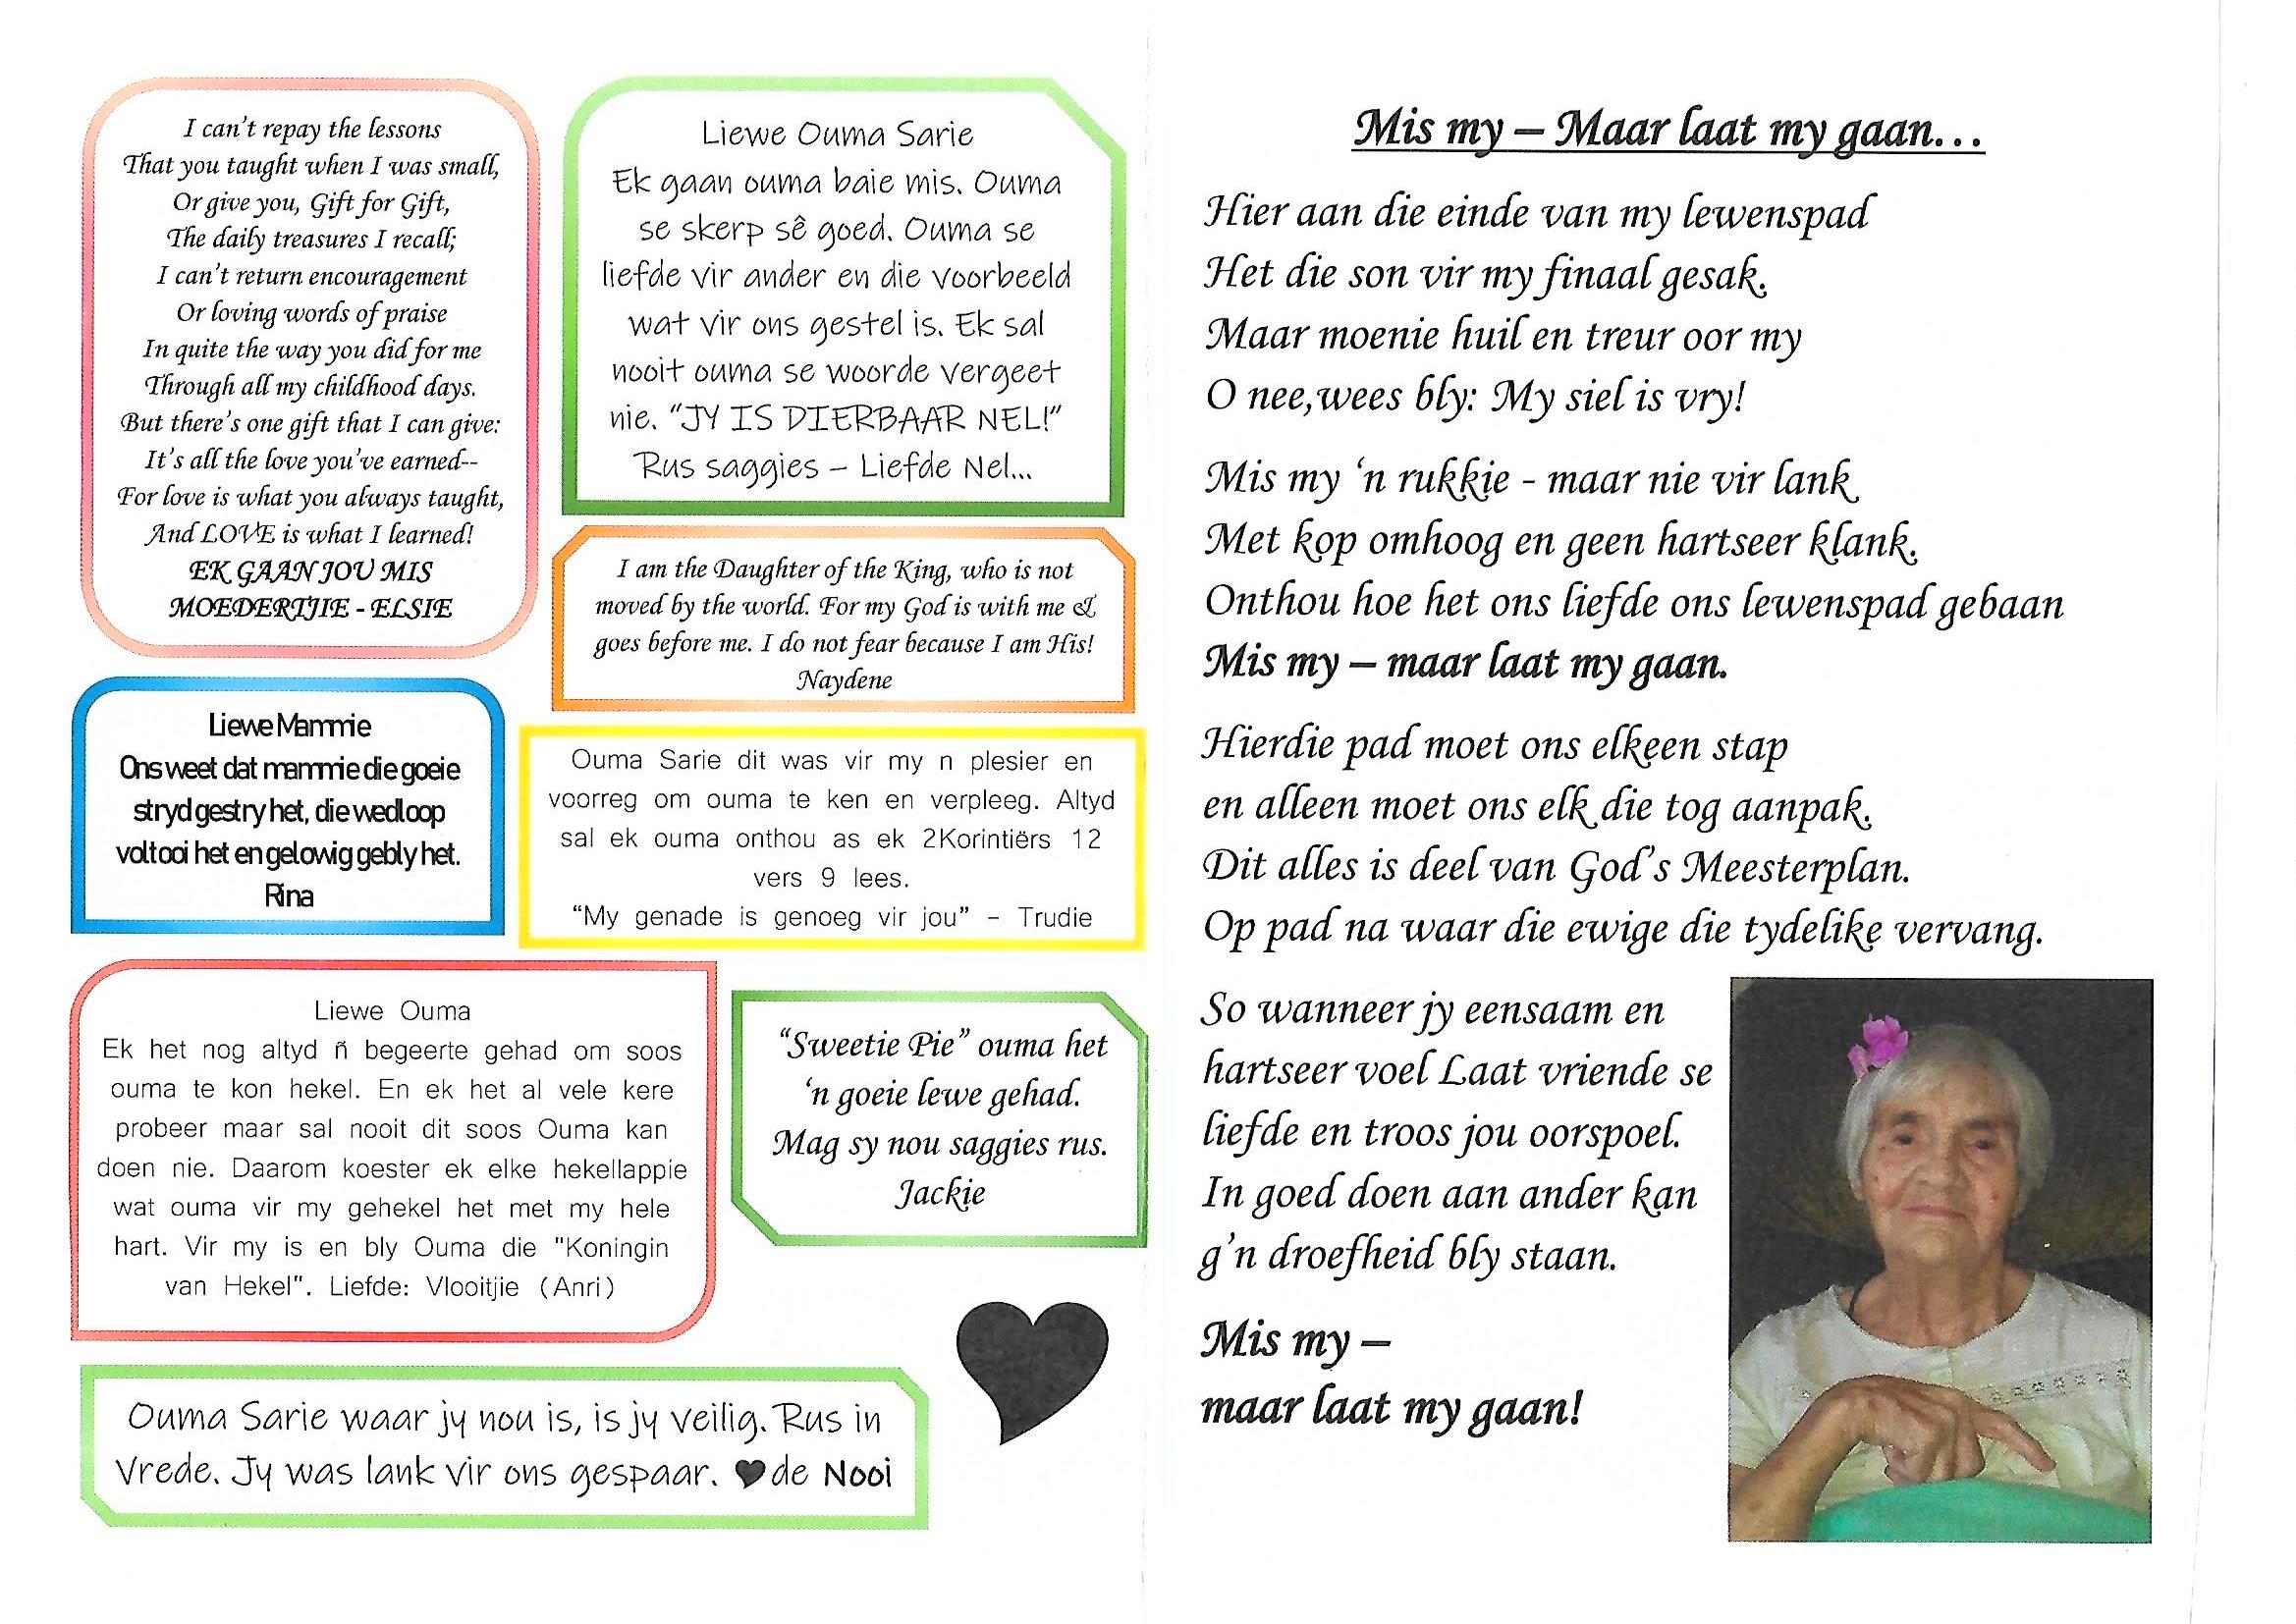 I can't repay the lessons
That you taught when I was small,
Or give you, Gift for Gift,
The daily treasures I recall;
I can't return encouragement
Or loving words of praise
In quite the way you did for me
Through all my childhood days.
But there's one gift that I can give:
It's all the love you've earned--
For love is what you always taught,
And LOVE is what I learned!
EK GAAN JOU MIS
MOEDERTJIE - ELSIE
Liewe Ouma Sarie
Ek gaan ouma baie mis. Ouma
se skerp sê goed. Ouma se
liefde vir ander en die voorbeeld
wat vir ons gestel is. Ek sal
nooit ouma se woorde vergeet
nie. "JY IS DIERBAAR NEL!"
Rus saggies – Liefde Nel...
I am the Daughter of the King, who is not
moved by the world. For my God is with me &
goes before me. I do not fear because I am His!
Naydene
Liewe Mammie
Ons weet dat mammie die goeie
stryd gestry het, die wedloop
voltooi het en gelowig gebly het.
Rina
Ouma Sarie dit was vir my n plesier en
voorreg om ouma te ken en verpleeg. Altyd
sal ek ouma onthou as ek 2Korintiërs 12
vers 9 lees.
"My genade is genoeg vir jou" – Trudie
Liewe Ouma
Ek het nog altyd ñ begeerte gehad om soos
ouma te kon hekel. En ek het al vele kere
probeer maar sal nooit dit soos Ouma kan
doen nie. Daarom koester ek elke hekellappie
wat ouma vir my gehekel het met my hele
hart. Vir my is en bly Ouma die "Koningin
van Hekel". Liefde: Vlooitjie (Anri)
"Sweetie Pie" ouma het
'n goeie lewe gehad.
Mag sy nou saggies rus.
Jackie
Ouma Sarie waar jy nou is, is jy veilig. Rus in
Vrede. Jy was lank vir ons gespaar. ♥de Nooi
Mis my – Maar laat my gaan...
Hier aan die einde van my lewenspad
Het die son vir my finaal gesak.
Maar moenie huil en treur oor my
O nee,wees bly: My siel is vry!
Mis my 'n rukkie - maar nie vir lank
Met kop omhoog en geen hartseer klank.
Onthou hoe het ons liefde ons lewenspad gebaan
Mis my – maar laat my gaan.
Hierdie pad moet ons elkeen stap
en alleen moet ons elk die tog aanpak.
Dit alles is deel van God's Meesterplan.
Op pad na waar die ewige die tydelike vervang.
So wanneer jy eensaam en
hartseer voel Laat vriende se
liefde en troos jou oorspoel.
In goed doen aan ander kan
g'n droefheid bly staan.
Mis my –
maar laat my gaan!